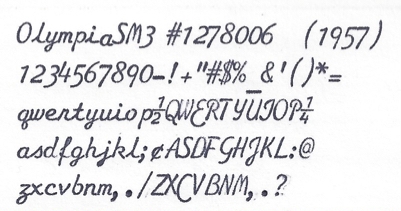 OlympiaSM3 #1278006 (1957)
1234567890-!+"#$%_&'()*=
qwertyuiop½QWERTYUIOP¼
asdfghjkl;¢ASDFGHJKL:@
zxcvbnm,./ZXCVBNM,.?